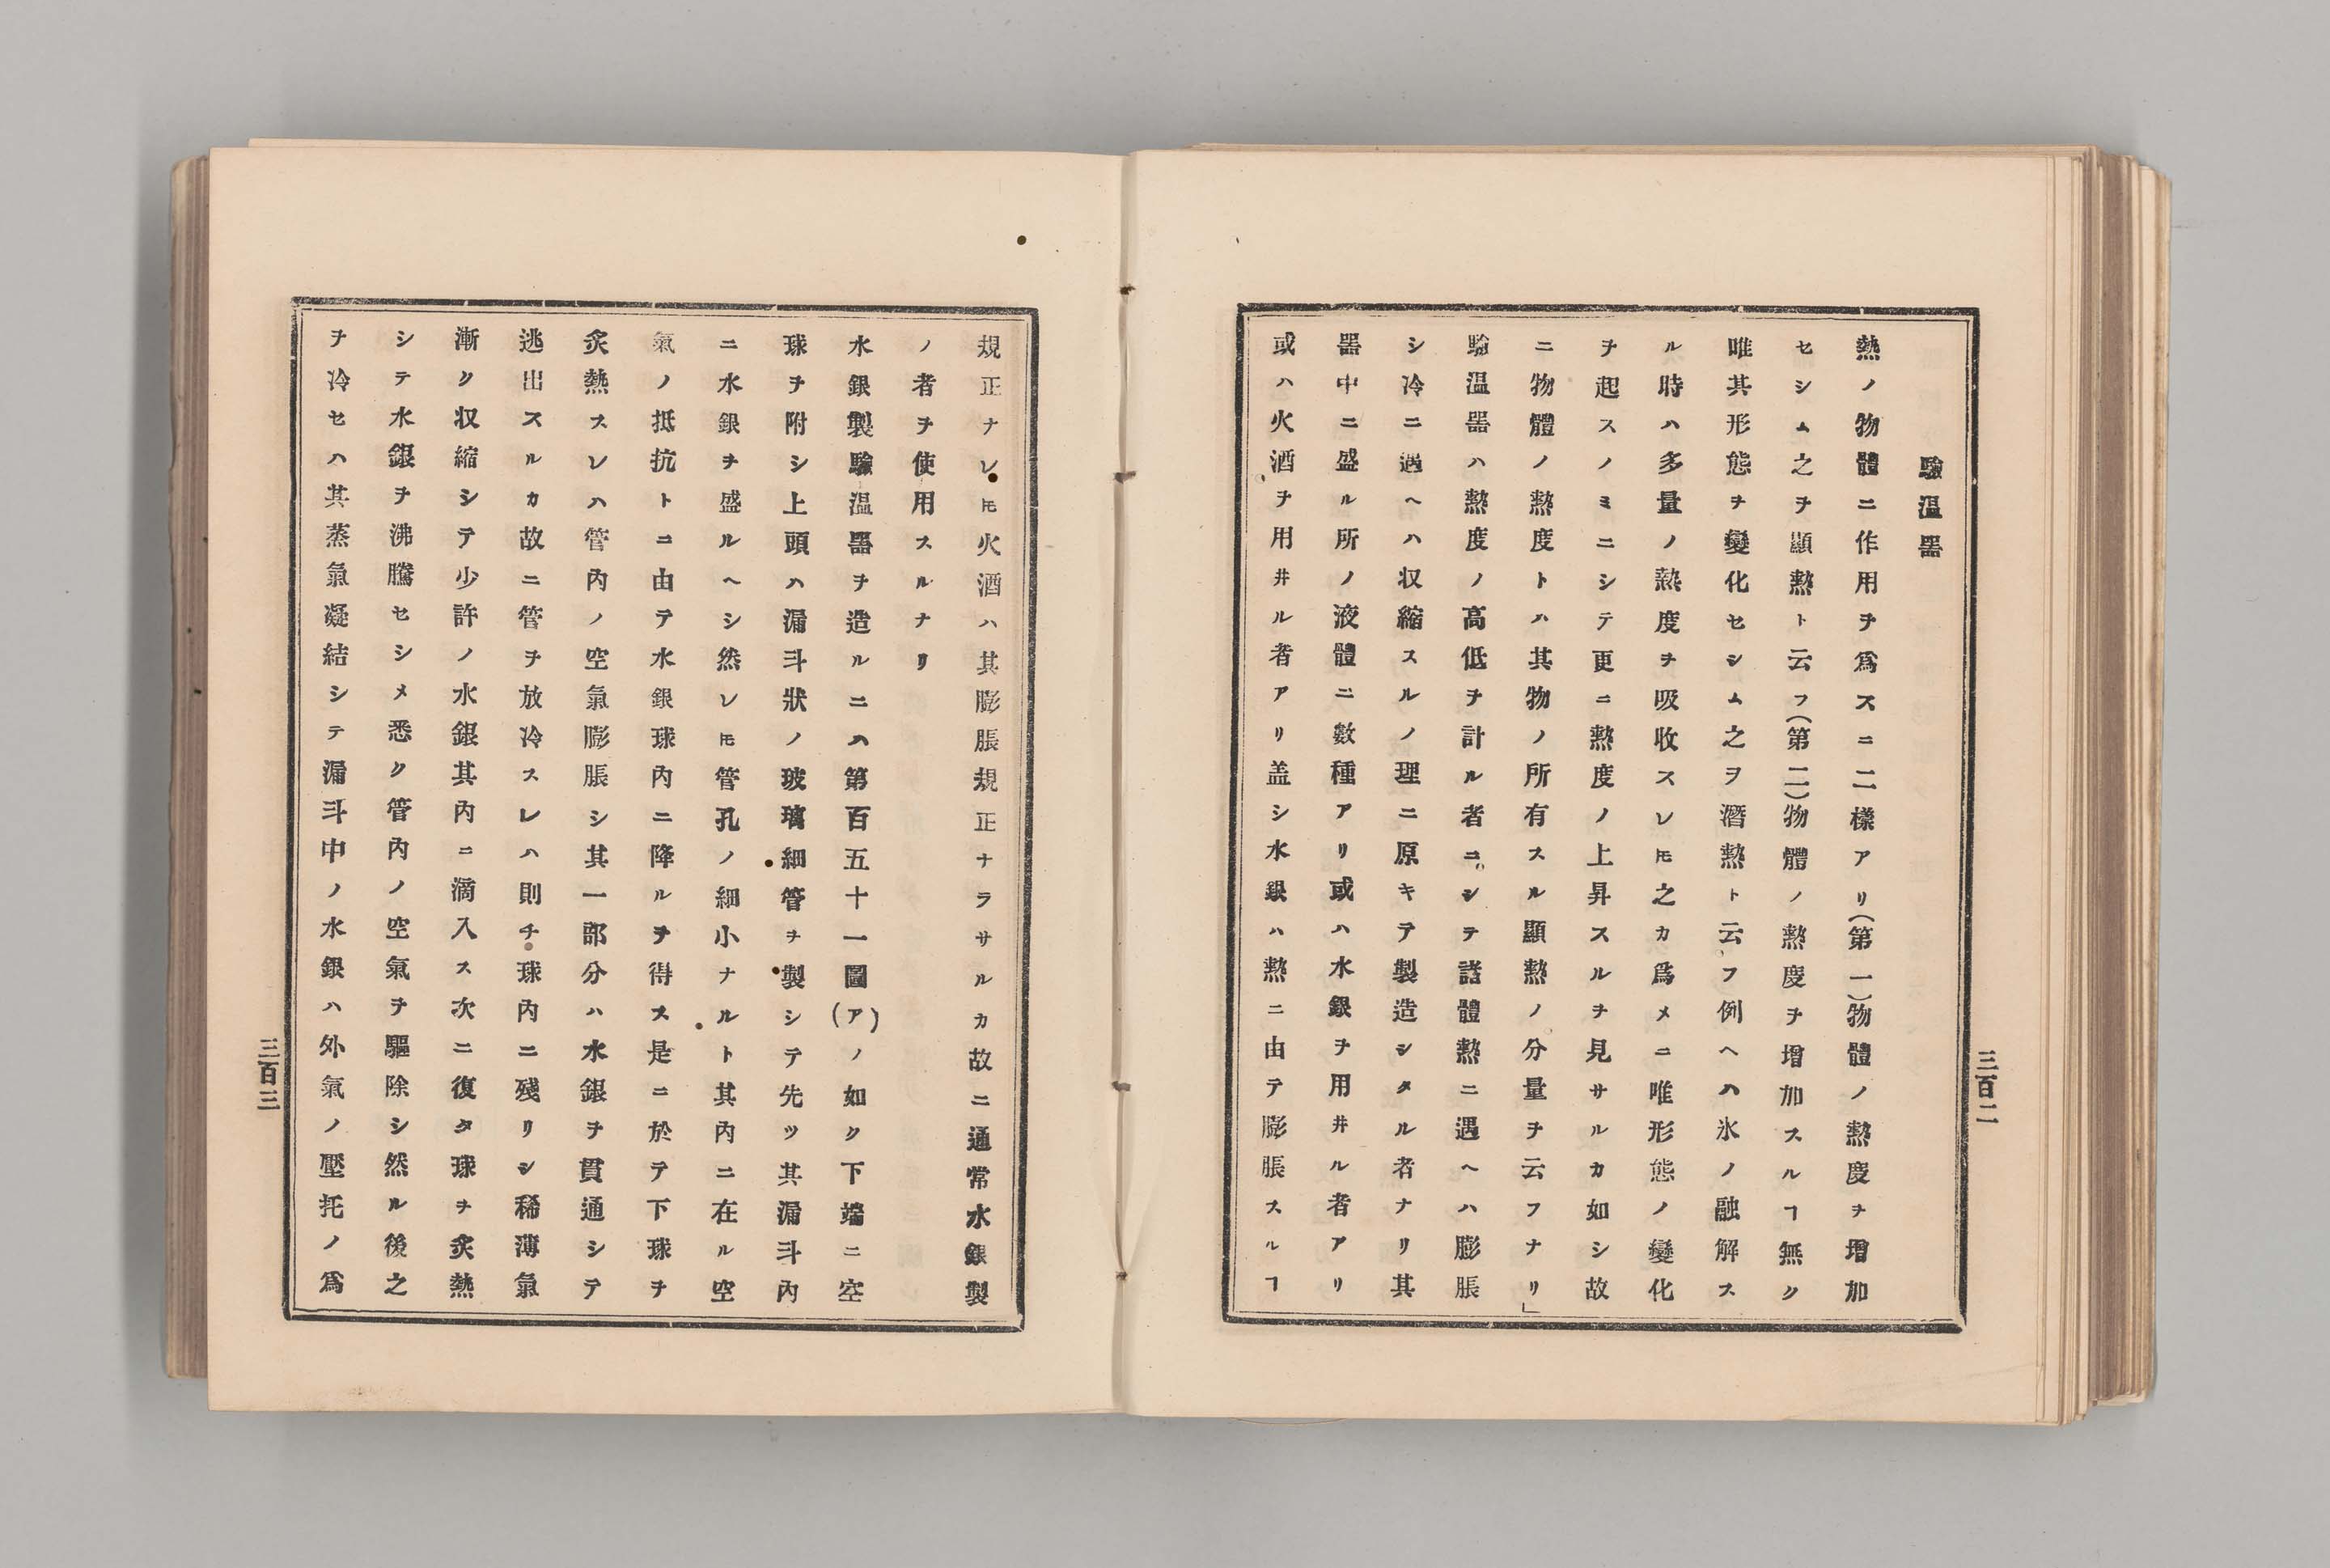 驗溫器
熱ノ物體ニ作用ヲ爲スニ二樣アリ(第一)物體ノ熱度ヲ增加
セシム之ヲ顯熱ト云フ(第二)物體ノ熱度ヲ增加スルヿ無ク
唯其形態ヲ變化セシム之ヲ潛熱ト云フ例ヘハ氷ノ融解ス
ル時ハ多量ノ熱度ヲ吸收スレ𪜈之カ爲メニ唯形態ノ變化
ヲ起スノミニシテ更ニ熱度ノ上昇スルヲ見サルカ如シ故
ニ物體ノ熱度トハ其物ノ所有スル顯熱ノ分量ヲ云フナリ」
驗溫器ハ熱度ノ高低ヲ計ル者ニシテ諸體熱ニ遇ヘハ膨脹
シ冷ニ遇ヘハ収縮スルノ理ニ原キテ製造シタル者ナリ其
器中ニ盛ル所ノ液體ニ數種アリ或ハ水銀ヲ用井ル者アリ
或ハ火酒ヲ用井ル者アリ盖シ水銀ハ熱ニ由テ膨脹スルヿ
三百二
規正ナレ𪜈火酒ハ其膨脹規正ナラサルカ故ニ通常水銀製
ノ者ヲ使用スルナリ
水銀製驗溫器ヲ造ルニハ第百五十一圖(ア)ノ如ク下端ニ空
球ヲ附シ上頭ハ漏斗狀ノ玻璃細管ヲ製シテ先ツ其漏斗內
ニ水銀ヲ盛ルヘシ然レ𪜈管孔ノ細小ナルト其內ニ在ル空
氣ノ抵抗トニ由テ水銀球內ニ降ルヲ得ス是ニ於テ下球ヲ
炙熱スレハ管內ノ空氣膨脹シ其一部分ハ水銀ヲ貫通シテ
逃出スルカ故ニ管ヲ放冷スレハ則チ球內ニ殘リシ稀薄氣
漸ク収縮シテ少許ノ水銀其內ニ滴入ス次ニ復タ球ヲ炙熱
シテ水銀ヲ沸騰セシメ悉ク管內ノ空氣ヲ驅除シ然ル後之
ヲ冷セハ其蒸氣凝結シテ漏斗中ノ水銀ハ外氣ノ壓托ノ爲
三百三